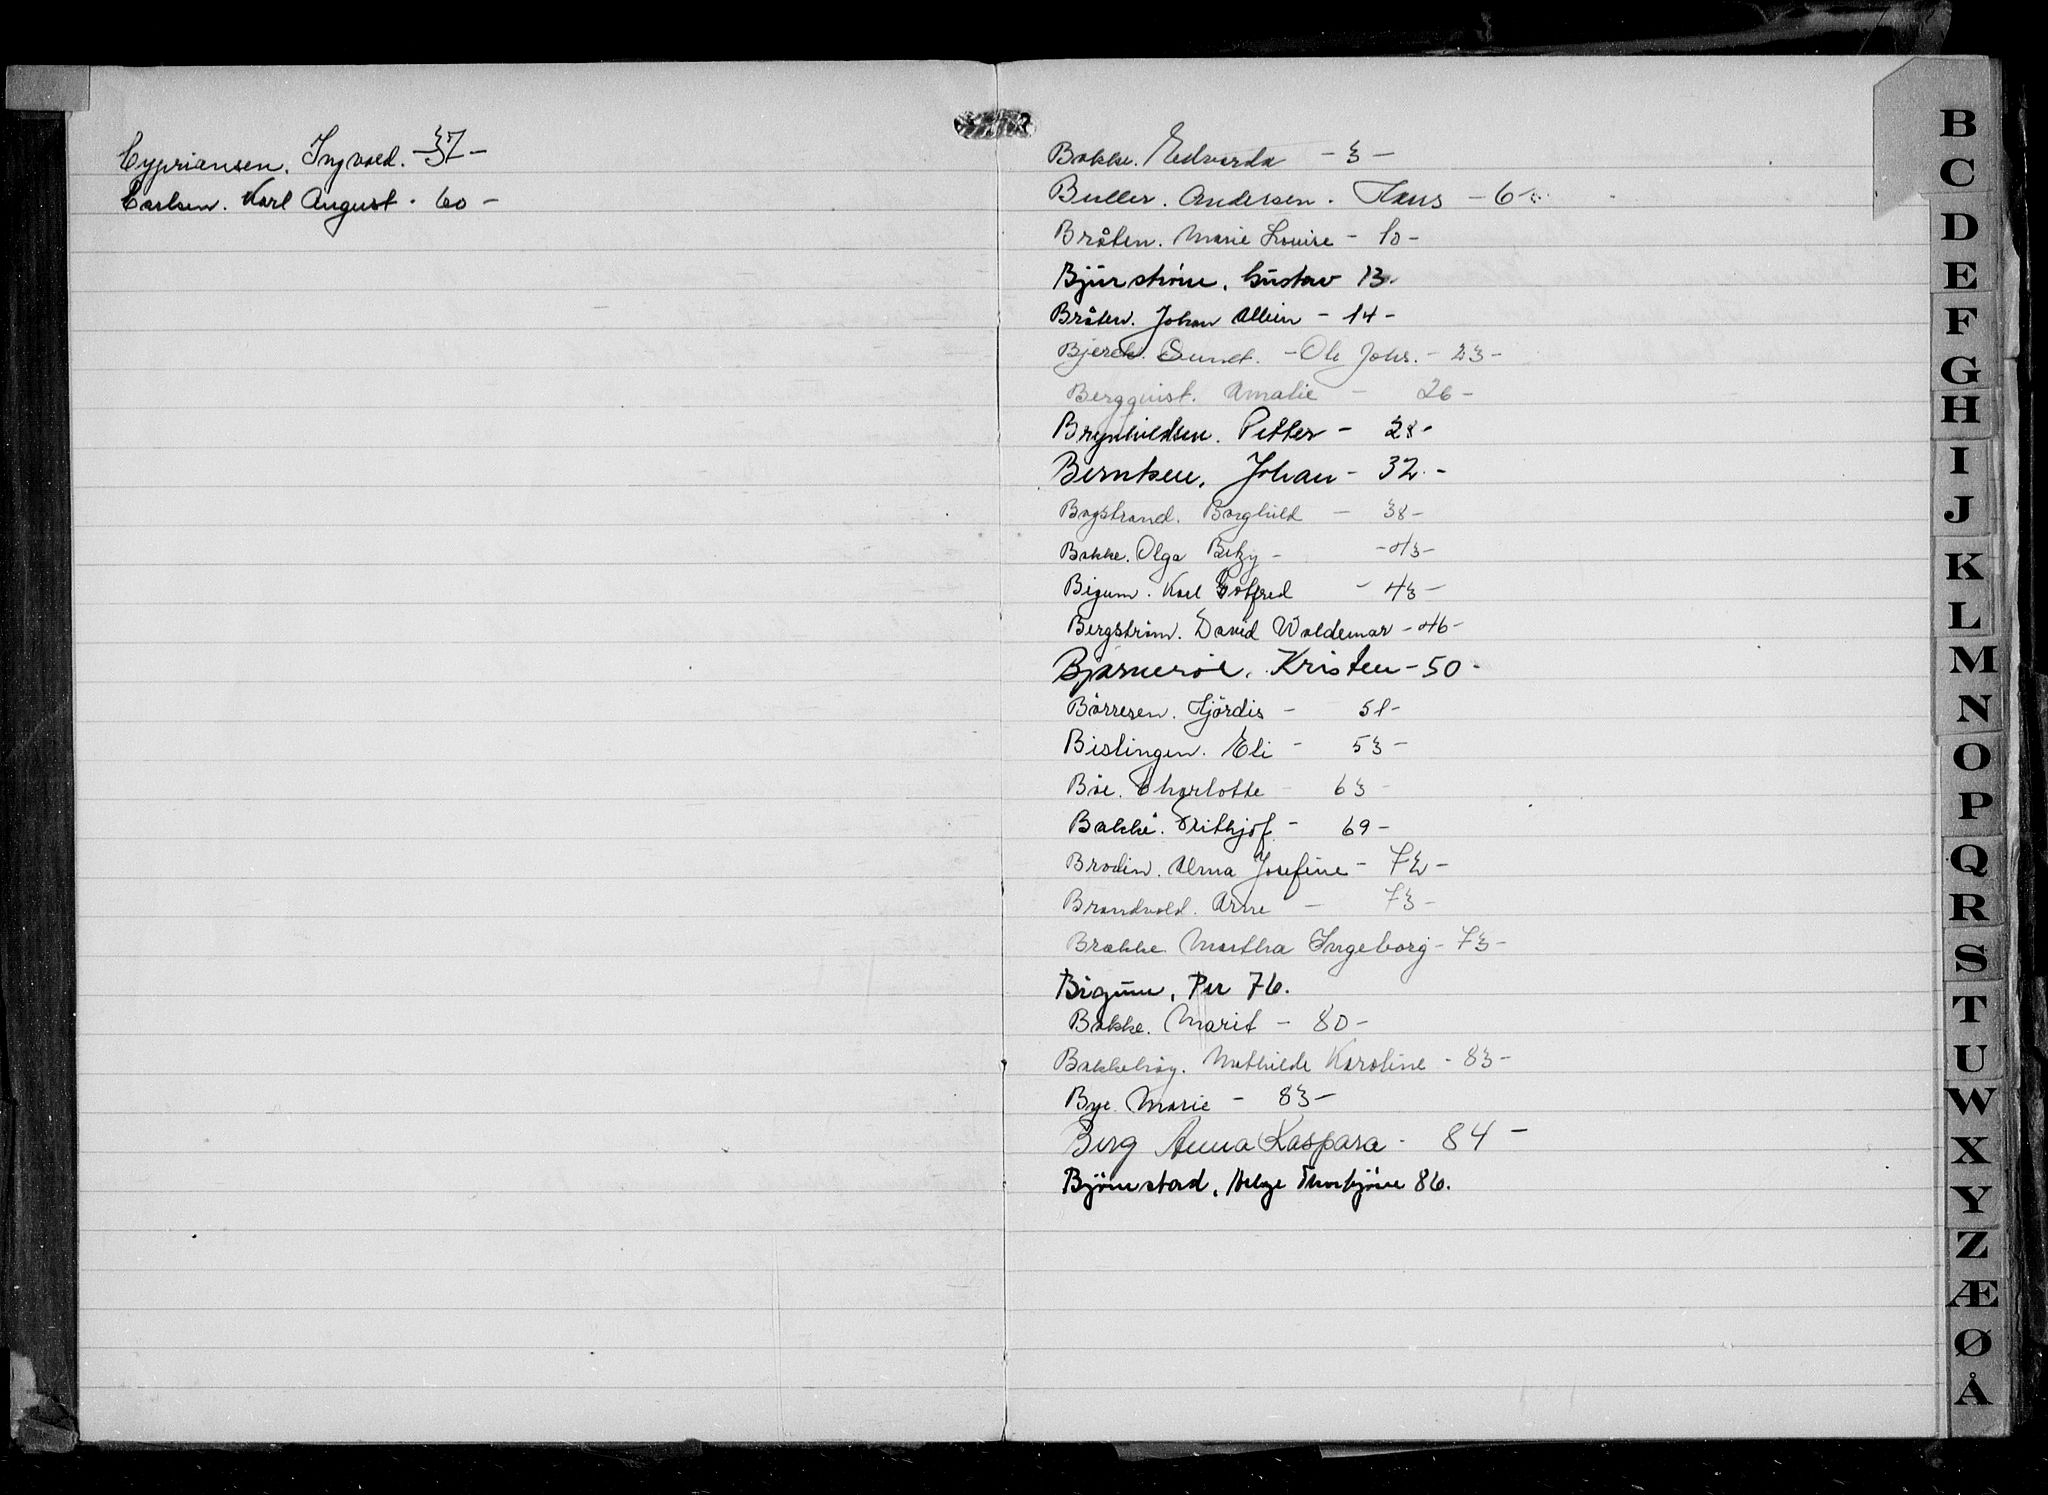 Cypriansen. Ingvald. - 37 -
Carlsen. Karl August. 60 -
Bakke. Edvarda - 3 -
Buller. Andersen. Hans - 6 -
Bråten. Marie Louise - 10 -
Bjurstrøm, Gustav 13.
Bråten. Johan Albin - 14 -
Bjerck. Sundt. - Ole Johs. - 23 -
Bergquist. Amalie - 26 -
Brynhildsen. Petter - 28 -
Berntsen, Johan - 32. -
Bogstrand. Borghild - 38 -
Bakke. Olga Betzy - - 43 -
Bigum. Karl Gotfred - 43 -
Bergstrøm. David Waldemar - 46 -
Bjørnerøe, Kristen - 50 -
Børresen. Hjørdis - 51 -
Bislingen. Eli - 53 -
Bøe. Charlotte - 63 -
Bakke. Frithjof - 69 -
Brodin. Alma Josefine - 72 -
Brandvold. Arne - 73 -
Brække Martha Ingeborg - 73 -
Bigum, Per 76.
Bakke. Marit - 80 -
Bakkehøy. Mathilde Karoline - 83 -
Bye. Marie - 83 -
Berg Anna Kaspara - 84 -
Bjørnstad, Helge Thorbjørn 86.
B
C
D
E
F
G
H
I
J
K
L
M
N
O
P
Q
R
S
T
U
W
X
Y
Z
Æ
Ø
Å